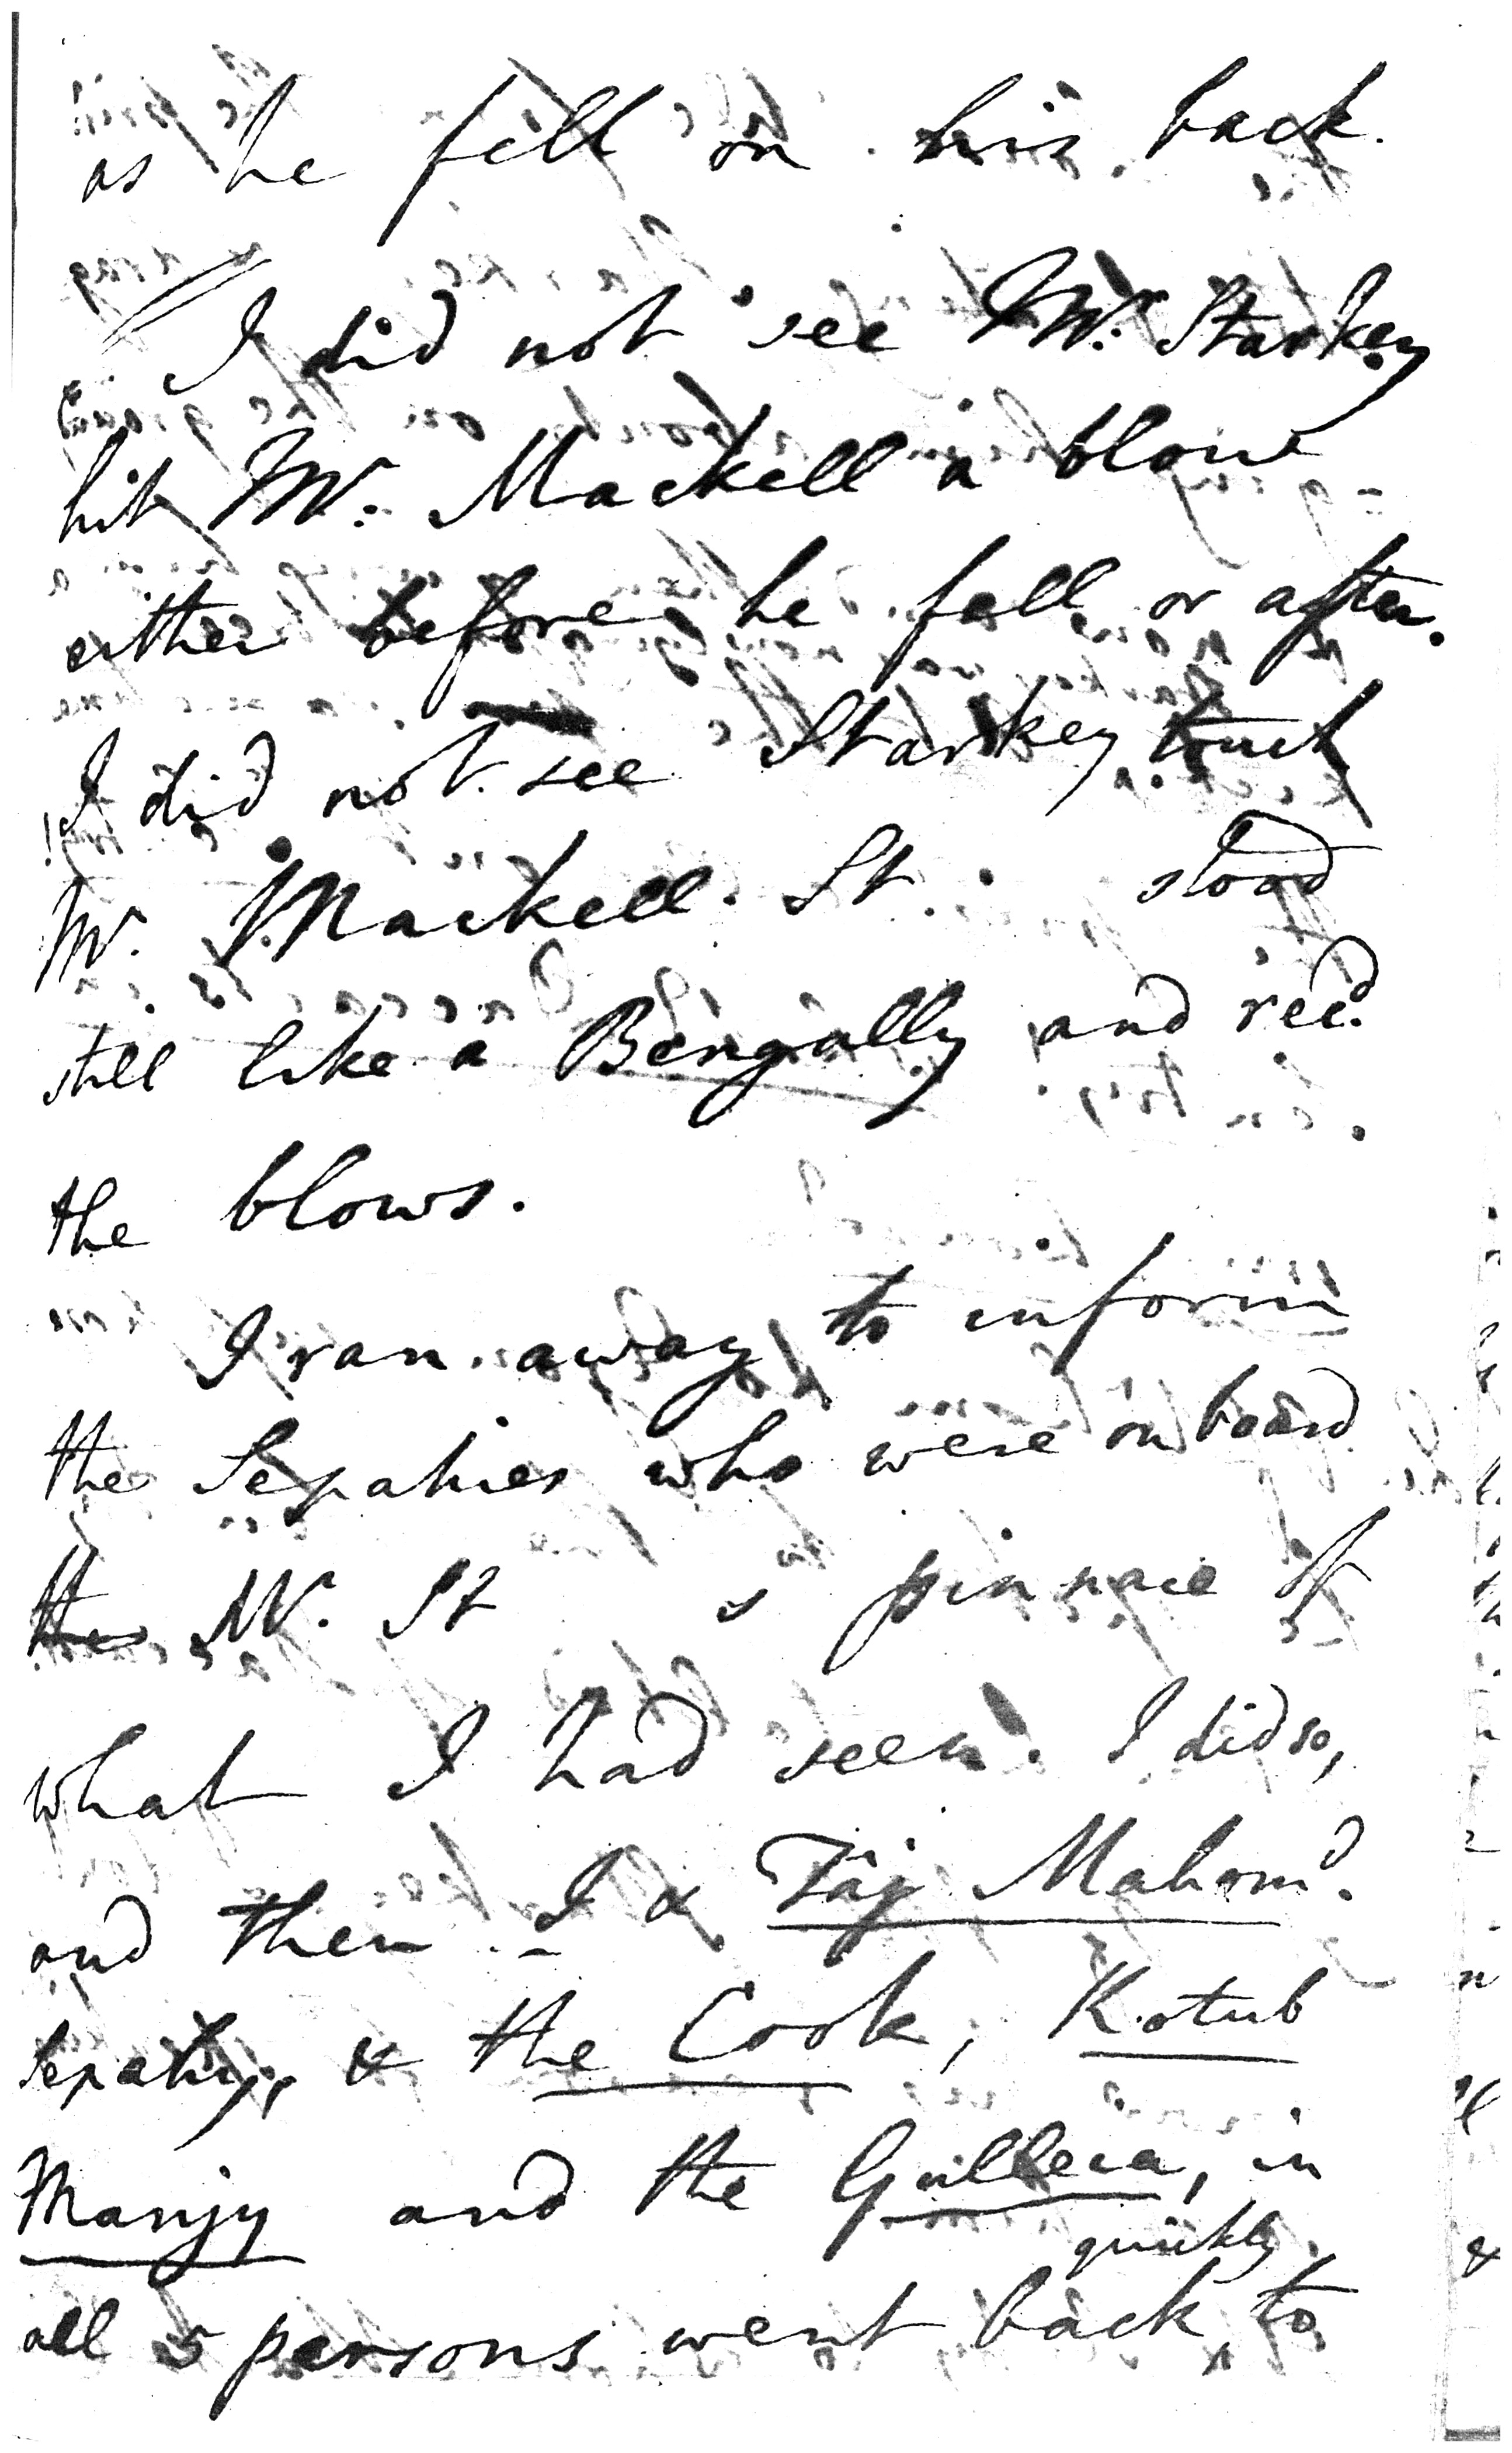 as he fell on his back.
I did not see Mr. Starkey
hit Mr. Mackell a blow
either before he fell or after.
I did not see Starkey touch
Mr. Mackell. St. stood
still like a Bengally and recd.
the blows.
I ran away to inform
the Sepahies who were on board
the Mr. St s pinnace of
what I had seen. I did so,
and then I & Tâj Mahomd.
Sepahy, & the Cook, Kotub
Manjy and the Gulleea, in
quickly
all 5 persons went back to